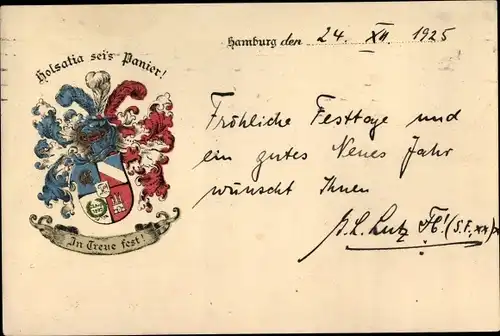 Holsatia sei's Panier!
Hamburg den 24. XII. 1925
Fröhliche Festtage und
ein gutes Neues Jahr
wünscht Ihnen
In Treue fest!
Lutz